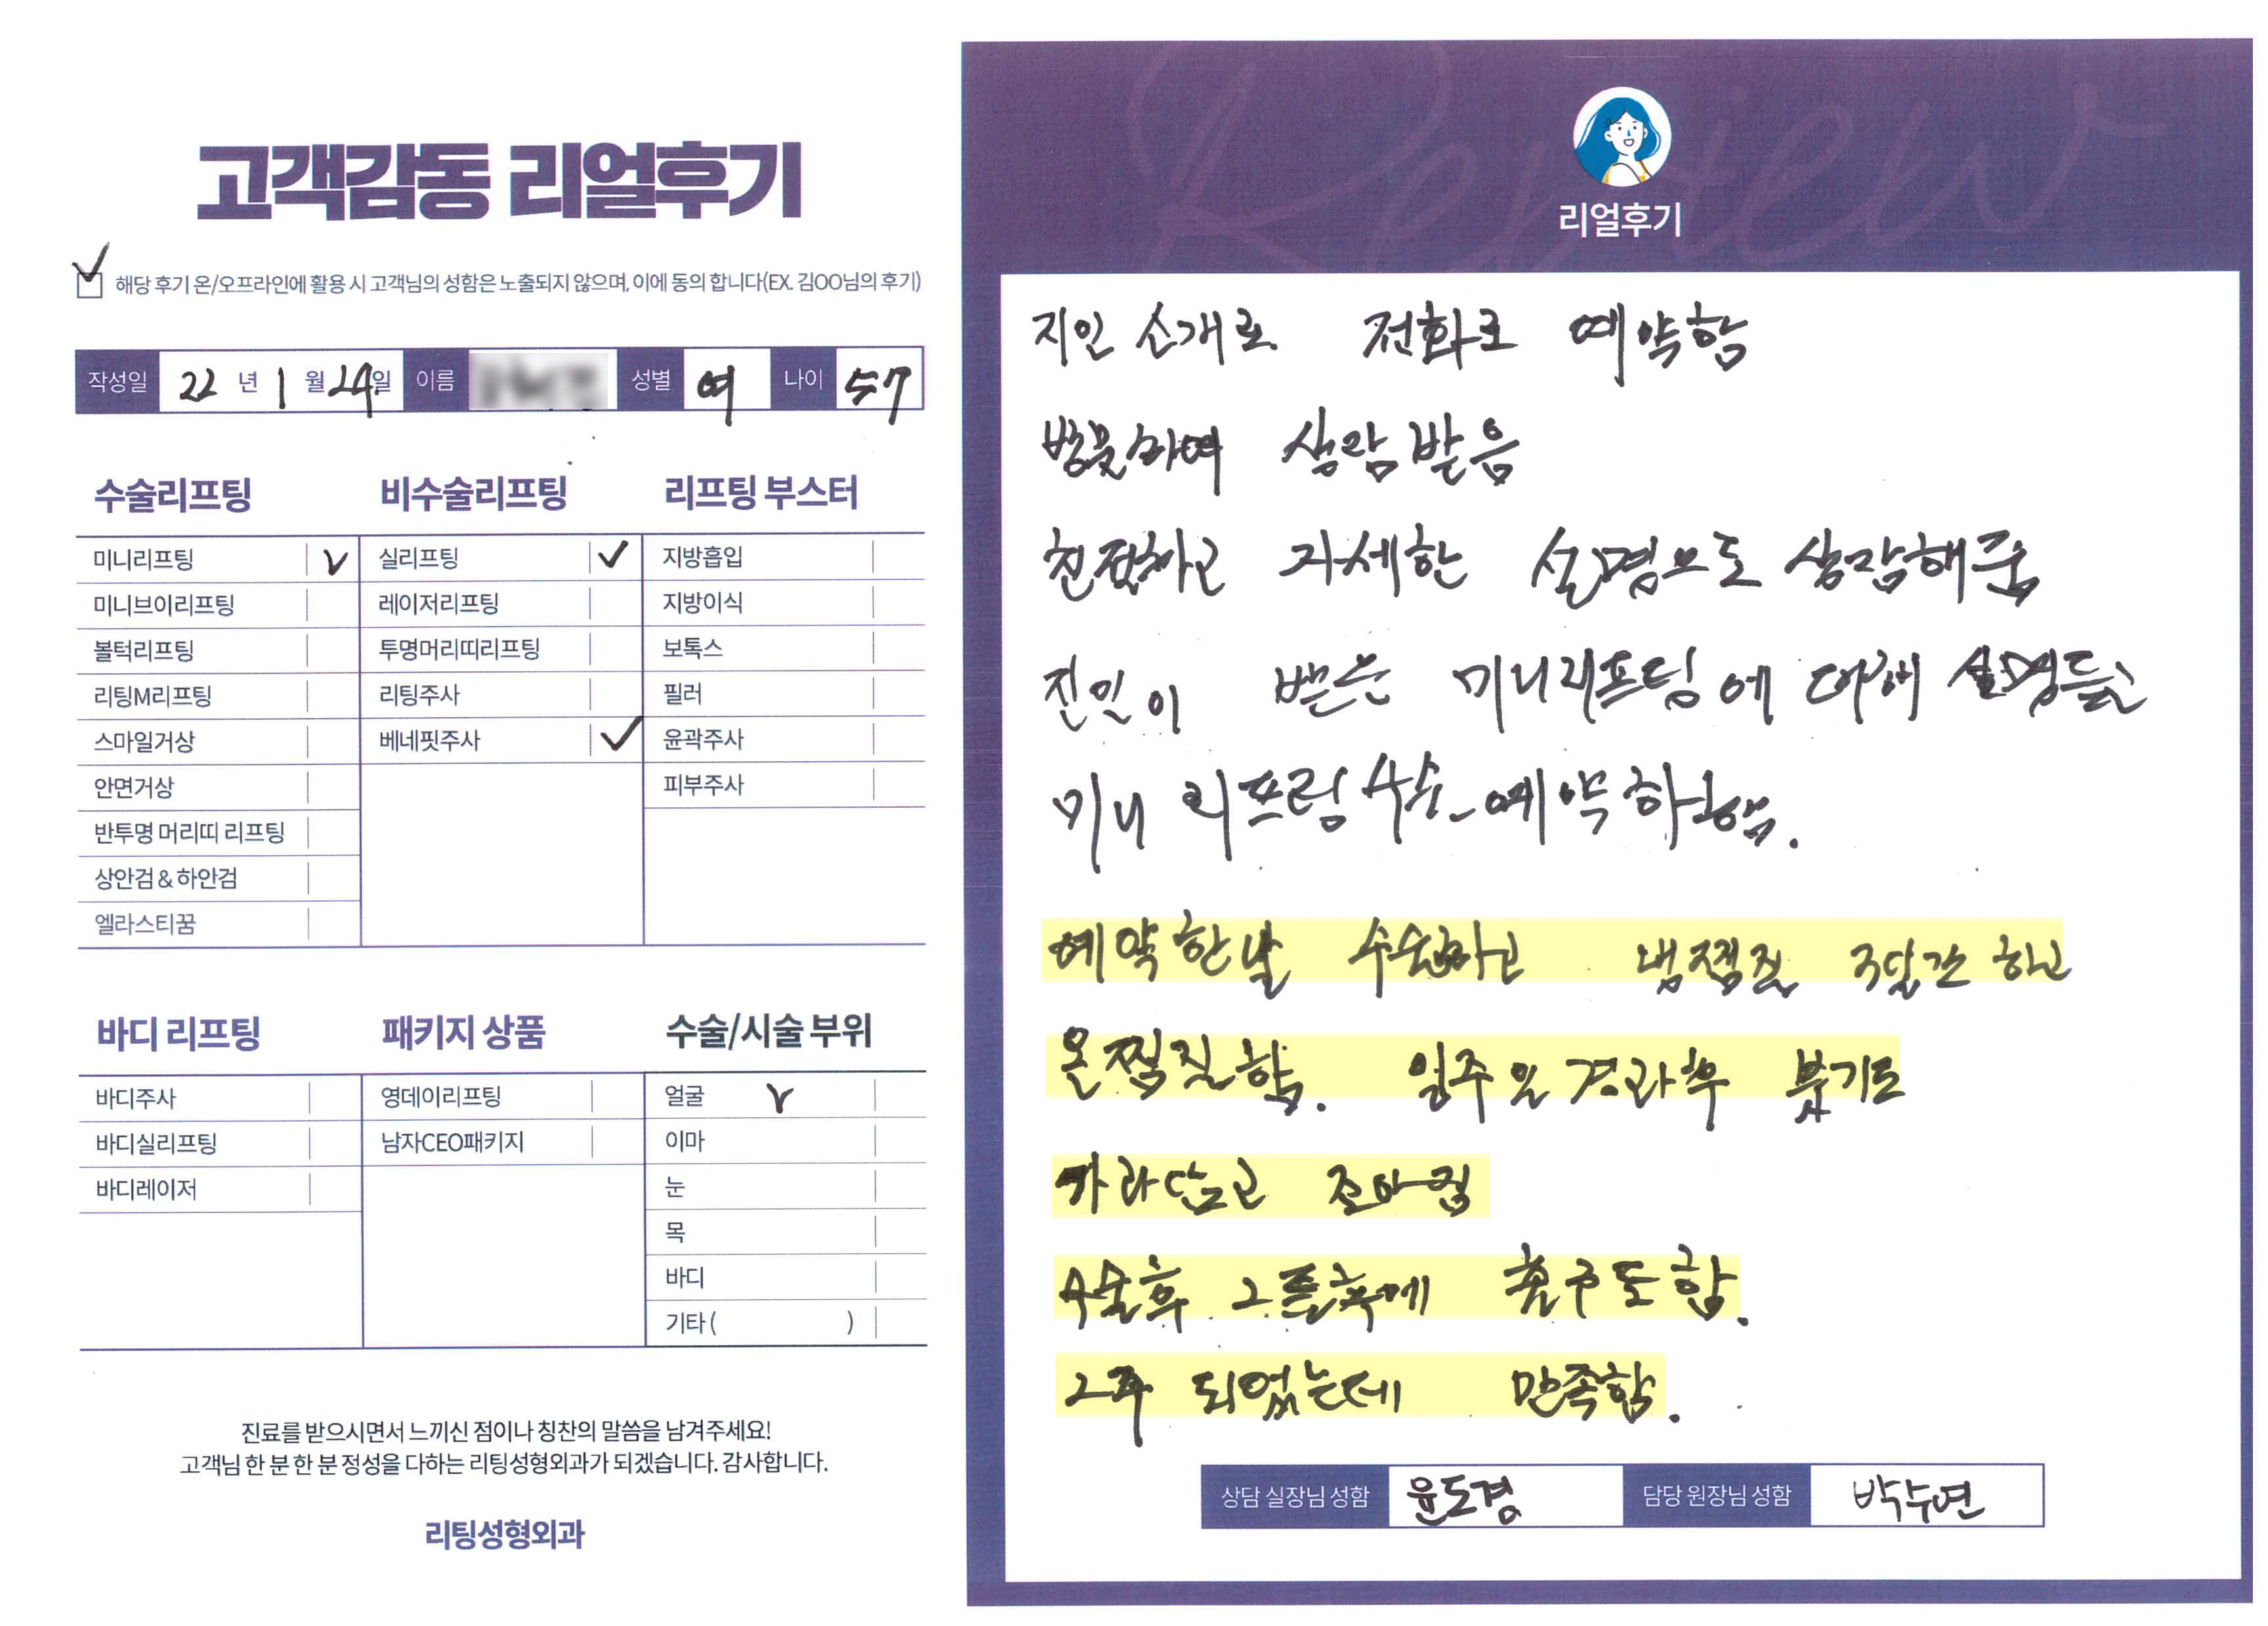 고객감동 리얼후기
해당 후기 온/오프라인에 활용 시 고객님의 성함은 노출되지 않으며, 이에 동의 합니다(EX. 김OO님의 후기)
작성일 22 년 1 월 24일 이름 성별 여 나이 57
수술리프팅
미니리프팅 V
미니브이리프팅
볼턱리프팅
리팅M리프팅
스마일거상
안면거상
반투명 머리띠 리프팅
상안검 & 하안검
엘라스티꿈
비수술리프팅
실리프팅 ✓
레이저리프팅
투명머리띠리프팅
리팅주사
베네핏주사 ✓
리프팅 부스터
지방흡입
지방이식
보톡스
필러
윤곽주사
피부주사
바디 리프팅
바디주사
바디실리프팅
바디레이저
패키지 상품
영데이리프팅
남자CEO패키지
수술/시술 부위
얼굴 V
이마
눈
목
바디
기타 ( )
진료를 받으시면서 느끼신 점이나 칭찬의 말씀을 남겨주세요!
고객님 한 분 한 분 정성을 다하는 리팅성형외과가 되겠습니다. 감사합니다.
리팅성형외과
Review
리얼후기
지인 소개로 전화로 예약함
방문하여 상담 받음
친절하고 자세한 설명으로 상담해줌
지인이 받은 미니리프팅에 대해 설명듣고
미니 리프팅 수술 예약하였음.
예약한날 수술하고 냉찜질 3일간 하고
온찜질함. 일주일 경과후 붓기도
가라앉고 좋아짐
수술후 그 다음 외출도 함.
2주 되었는데 만족함.
상담 실장님 성함 윤도경 담당 원장님 성함 박수연